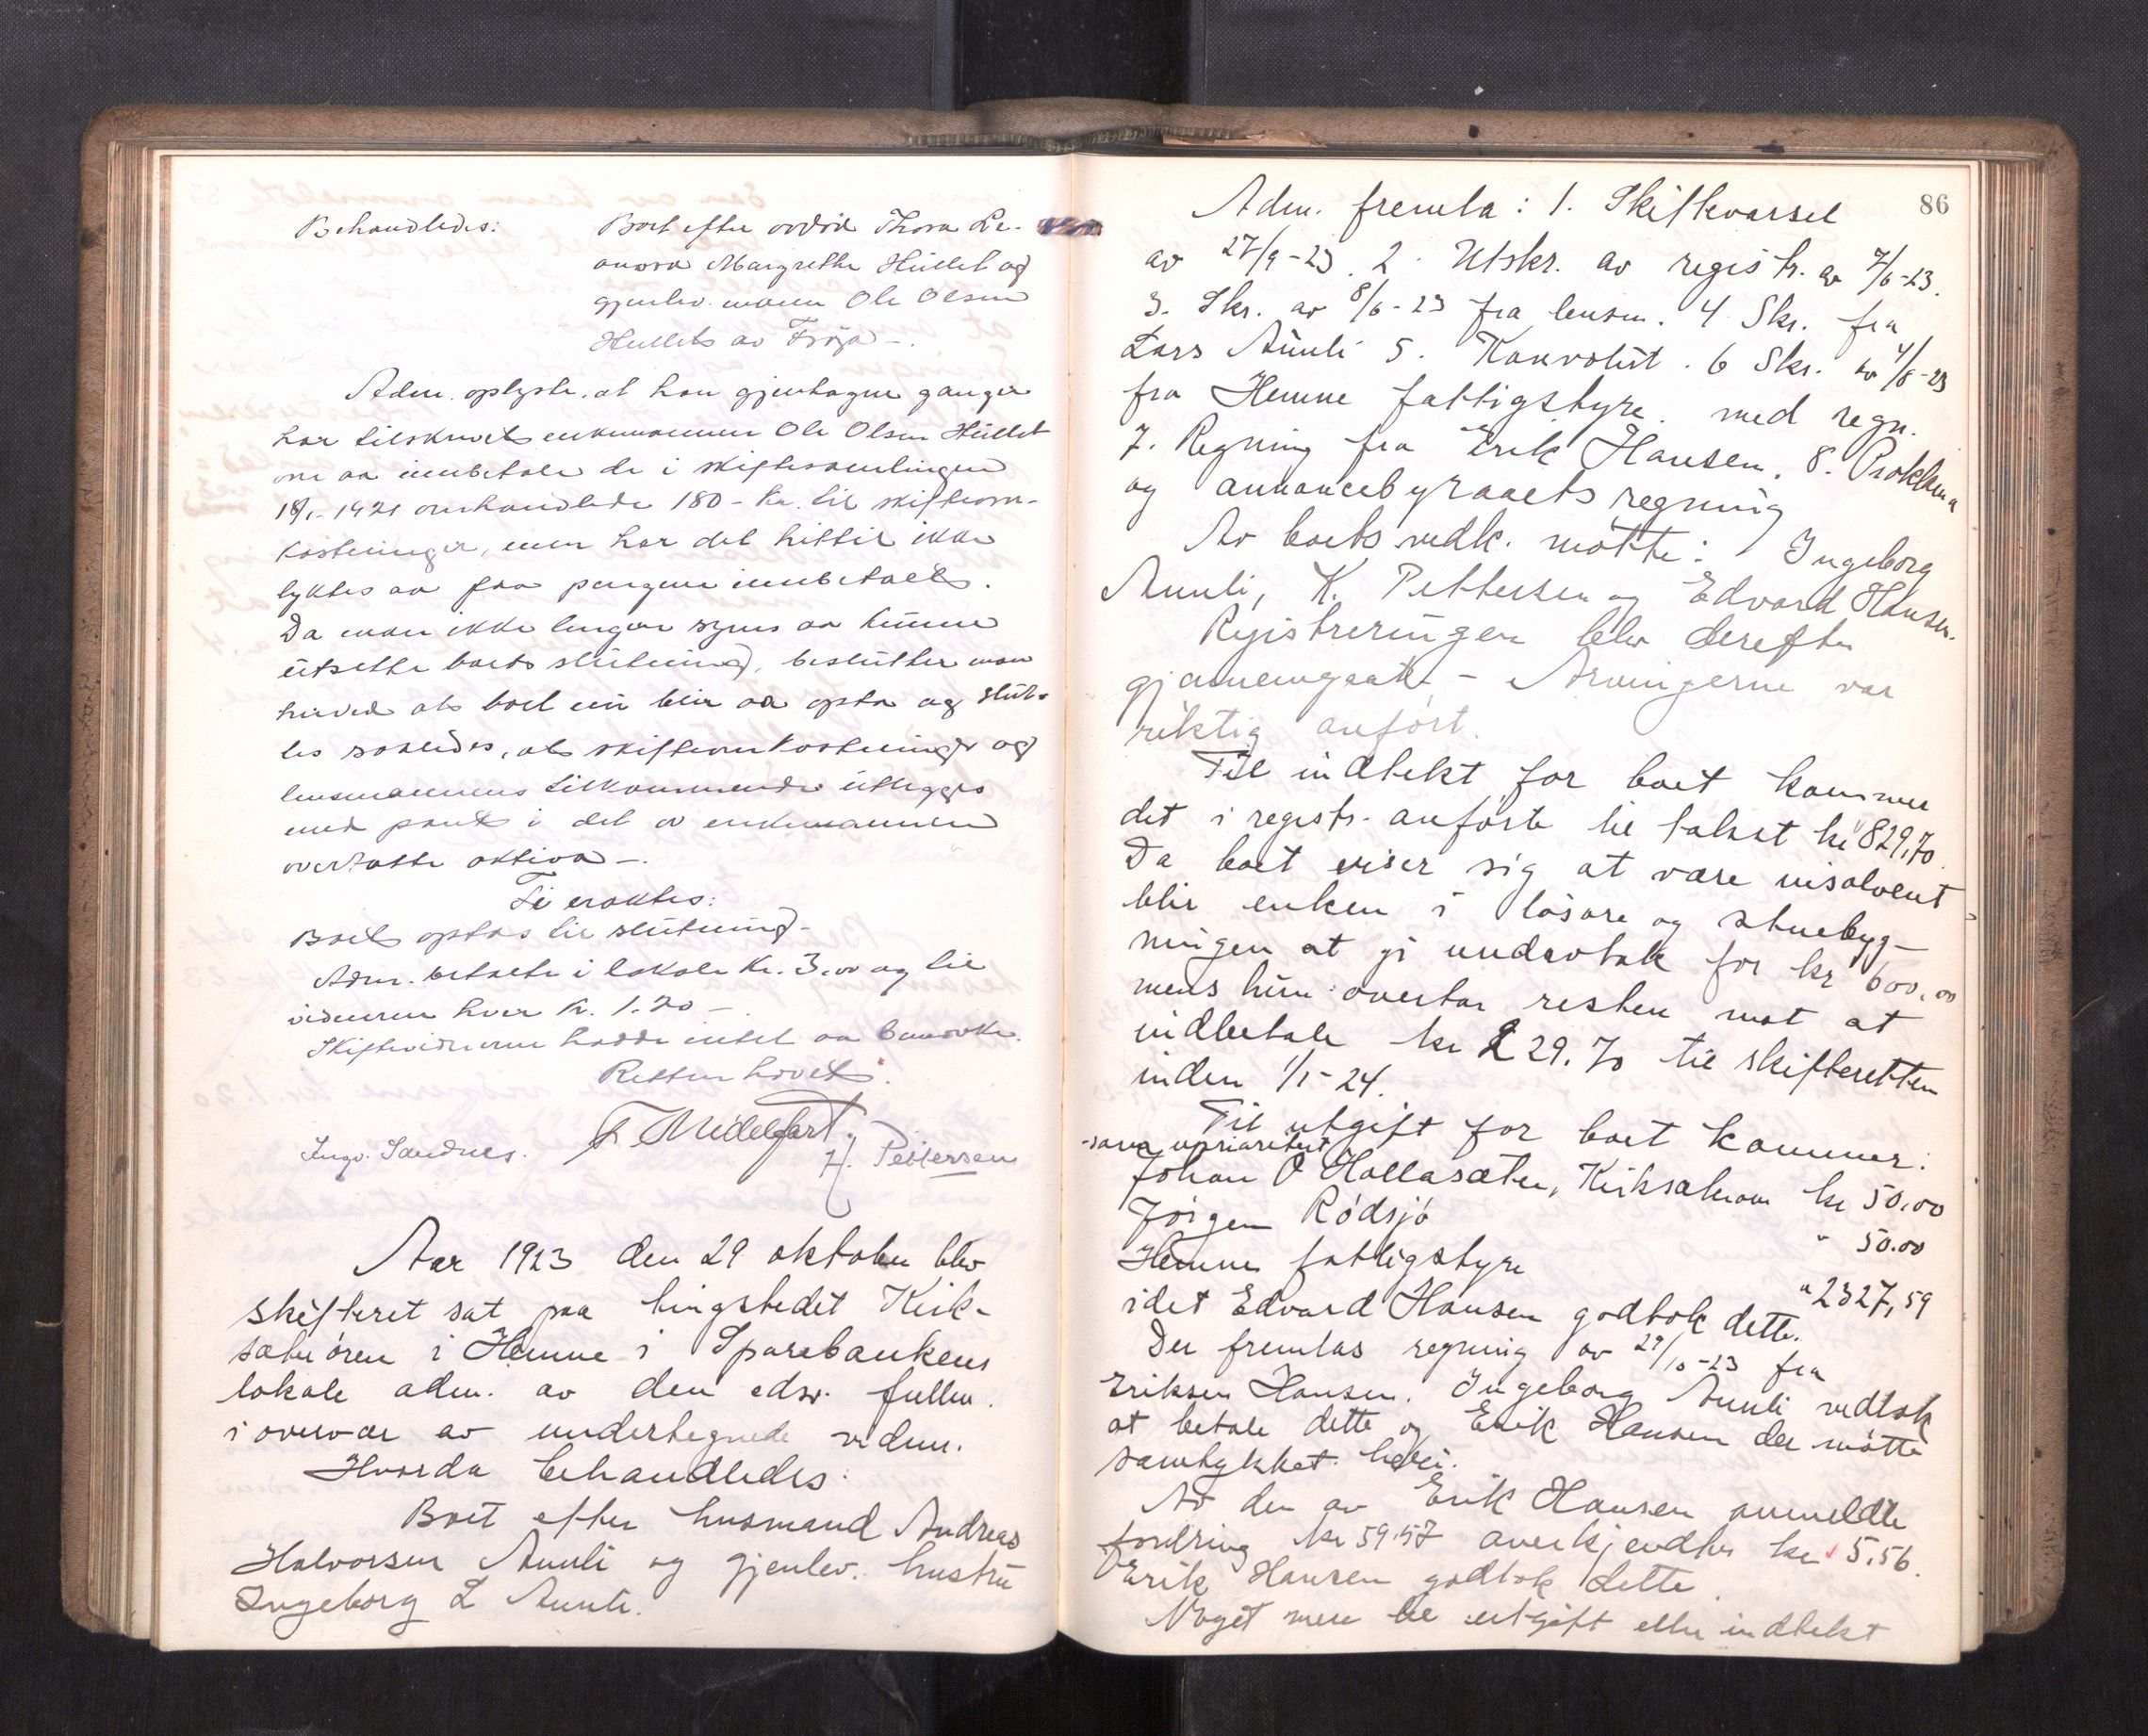 Behandledes:
Boet efter avdøde Thora Le-
onora Margrethe Hüllet og
gjenlev. mann Ole Olsen
Hullet av Frøya -.
Adm. oplyste, at han gjentagne ganger
har tilskrevet enkemannen Ole Olsen Hüllet
om aa innbetale de i skiftesamlingen
18/1-1921 omhandlede 180 - kr. til skifteom-
kostninger, men har det hittil ikke
lyktes aa faa pengene innbetalt.
Da man ikke lenger synes aa kunne
utsette boets slutning, beslutter man
herved at boet nu blir aa opta og slut-
tes saaledes, at skifteomkostninger og
lensmannens tilkommende utlegges
med pant i det av enkemannen
overtatte aktiva -.
Ti eraktes:
Boet optas til slutning -
Adm. betalte i lokale kr. 3.00 og til
vidnerne hver kr. 1.20 -
Skiftevidnerne hadde intet aa bemerke.
Retten hevet.
F. Midelfart.
Ingv. Sandnes. H. Pettersen
Aar 1923 den 29 oktober blev
skifteret sat paa tingstedet Kirk-
sæterøren i Hemne i Sparebankens
lokale adm. av den edsv. fullm.
i overvær av undertegnede vidner.
Hvorda behandledes:
Boet efter husmand Andreas
Halvorsen Aunli og gjenlev. hustru
Ingeborg L Aunli.
86
Adm. fremla: 1. Skiftevarsel
av 27/9-23. 2. Utskr. av registr. av 7/6-23.
3. Skr. av 8/6-23 fra lensm. 4 Skr. fra
Lars Aunli 5. Konvolut. 6 Skr. av 4/8-23
fra Hemne fattigstyre med regn.
7. Regning fra Erik Hansen. 8. Proklama
og annoncebyraaets regning
Av boets vedk. møtte: Ingeborg
Aunli, K. Pettersen og Edvard Hansen.
Registreringen blev derefter
gjennemgaat - Arvingerne var
riktig anført.
Til indtekt for boet kommer
det i registr. anførte til takst kr 829,70.
Da boet viser sig at være insolvent
blir enken i løsøre og stuebyg-
ningen at gi undavtak for kr 600,00
mens hun overtar resten mot at
indbetale kr 229.70 til skifteretten
inden 1/1-24.
Til utgift for boet kommer:
-som uprioritert
Johan O Hollasæter, Kirksæterøren kr 50,00
Jørgen Rødsjø " 50.00
Hemne fattigstyre "2327,59
idet Edvard Hansen godtok dette.
Der fremlas regning av 29/10-23 fra
Eriksen Hansen. Ingeborg Aunli vedtok
at betale dette og Erik Hansen der møtte
samtykket heri.
Av den av Erik Hansen anmeldte
fordring kr 59.57 anerkjendtes kr 5.56.
Erik Hansen godtok dette.
Noget mere til utgift eller indtekt